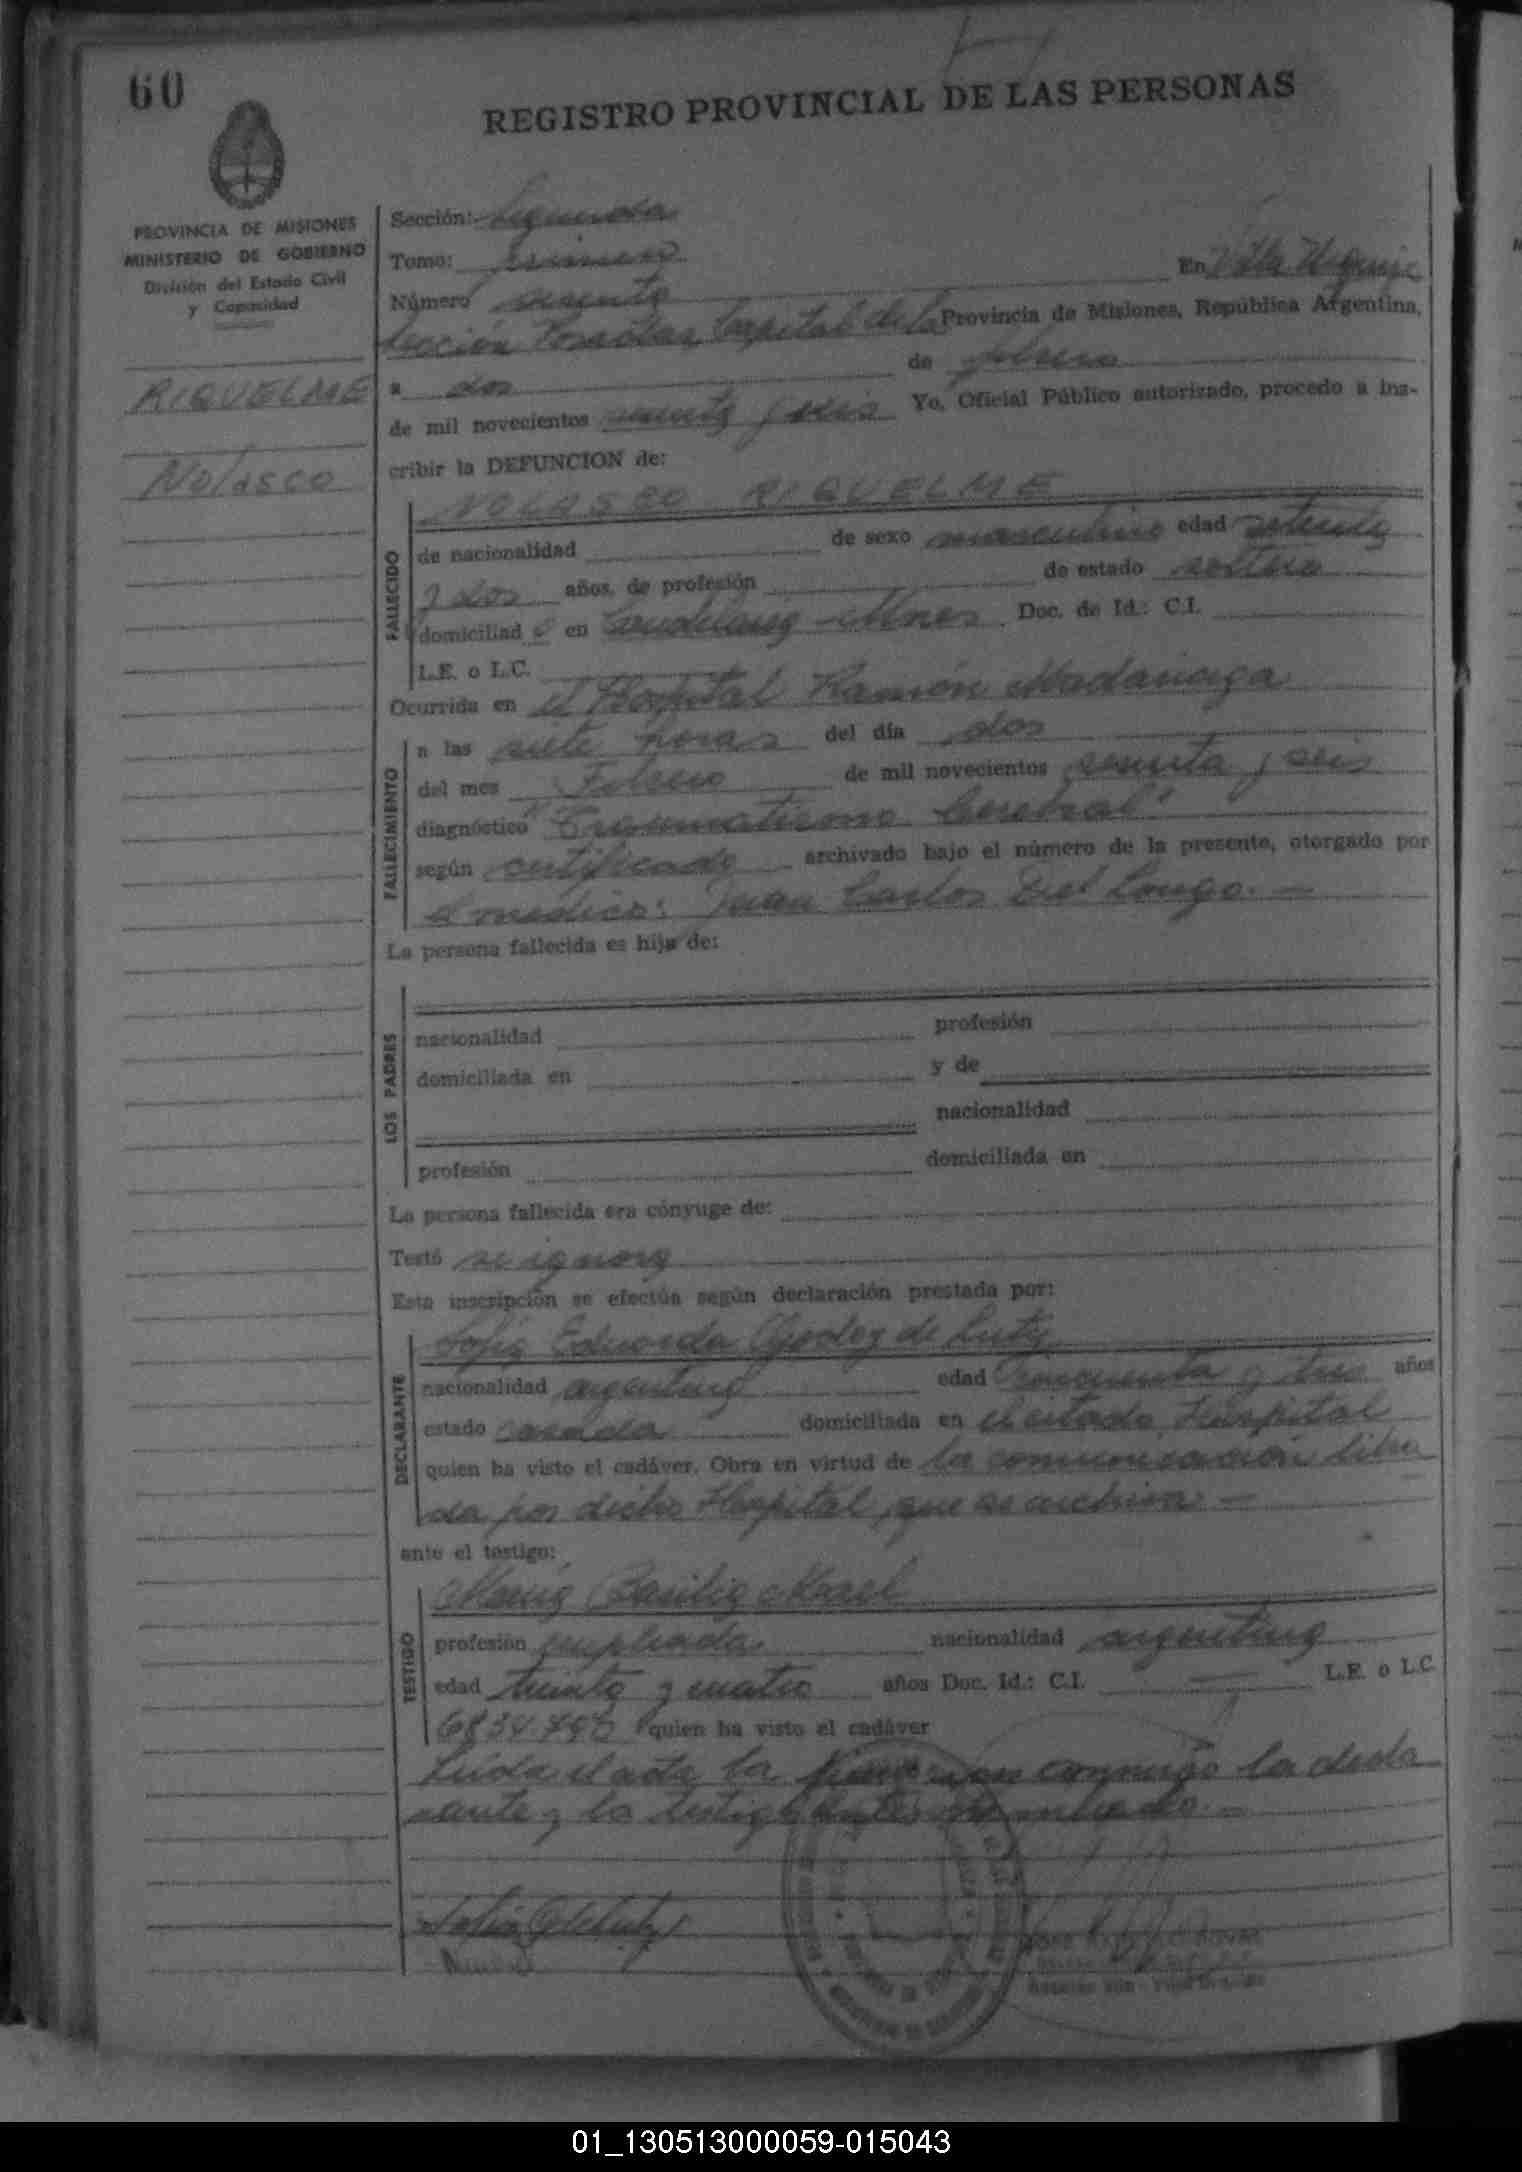 60
REGISTRO PROVINCIAL DE LAS PERSONAS
PROVINCIA DE MISIONES
MINISTERIO DE GOBIERNO
División del Estado Civil
y Capacidad
RIQUELME
Nolasco
Sección: Segunda
Tomo: primero
Número sesenta En Villa Urquiza
Sección Posadas, Capital de la Provincia de Misiones, República Argentina,
a dos de febrero
de mil novecientos sesenta y seis Yo, Oficial Público autorizado, procedo a ins-
cribir la DEFUNCION de:
NOLASCO RIQUELME
FALLECIDO
de nacionalidad de sexo masculino edad setenta
y dos años, de profesión de estado soltero
domiciliado en Candelaria - Mnes Doc. de Id.: C.I.
L.E. o L.C.
Ocurrida en el Hospital Ramón Madariaga
FALLECIMIENTO
a las siete horas del día dos
del mes Febrero de mil novecientos sesenta y seis
diagnóstico "Traumatismo Cerebral"
según certificado archivado bajo el número de la presente, otorgado por
el medico: Juan Carlos Del Longo. —
La persona fallecida es hija de:
LOS PADRES
nacionalidad profesión
domiciliada en y de
nacionalidad
profesión domiciliada en
La persona fallecida era cónyuge de:
Testó se ignora
Esta inscripción se efectúa según declaración prestada por:
DECLARANTE
Sofia Eduarda de
nacionalidad argentina edad cincuenta y tres años
estado casada domiciliada en el citado Hospital
quien ha visto el cadáver. Obra en virtud de la comunicación libra
da por dicho Hospital, que se archiva —
ante el testigo:
TESTIGO
Maria Basilia
profesión empleada nacionalidad argentina
edad treinta y cuatro años Doc. Id.: C.I. — L.E. o L.C.
quien ha visto el cadáver
Leida el acta la conmigo la decla
rante y la testigo —
01_130513000059-015043